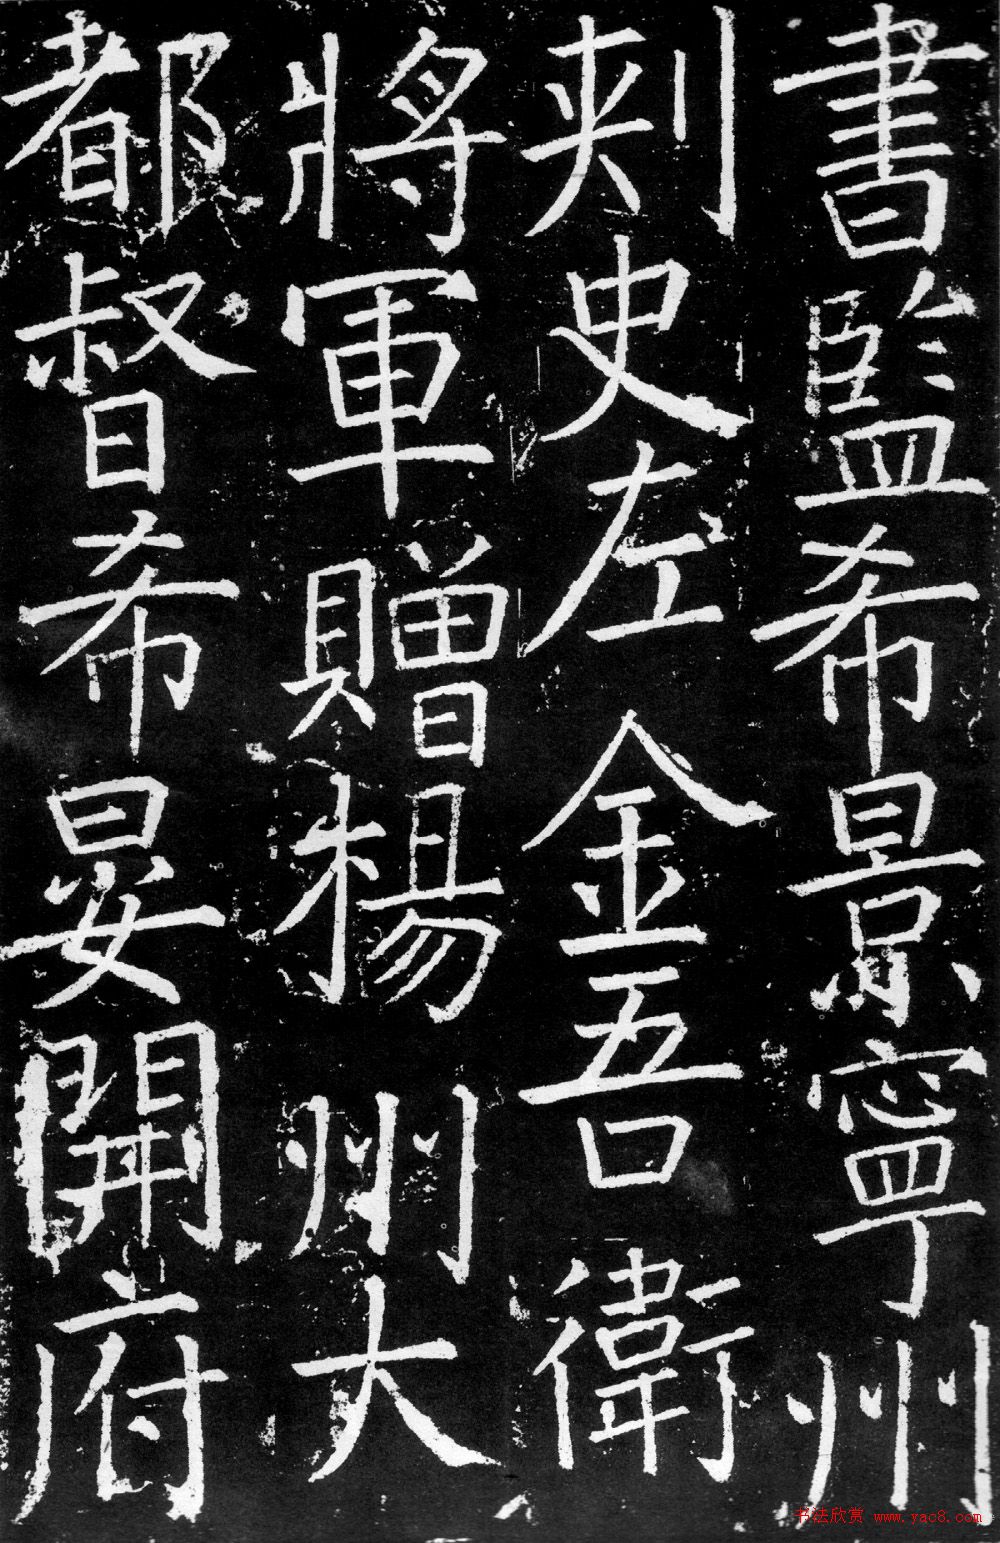 書監希景寧州
刾史左金吾衛
將軍贈楊州大
都督希晏開府
书法欣赏 www.yac8.com